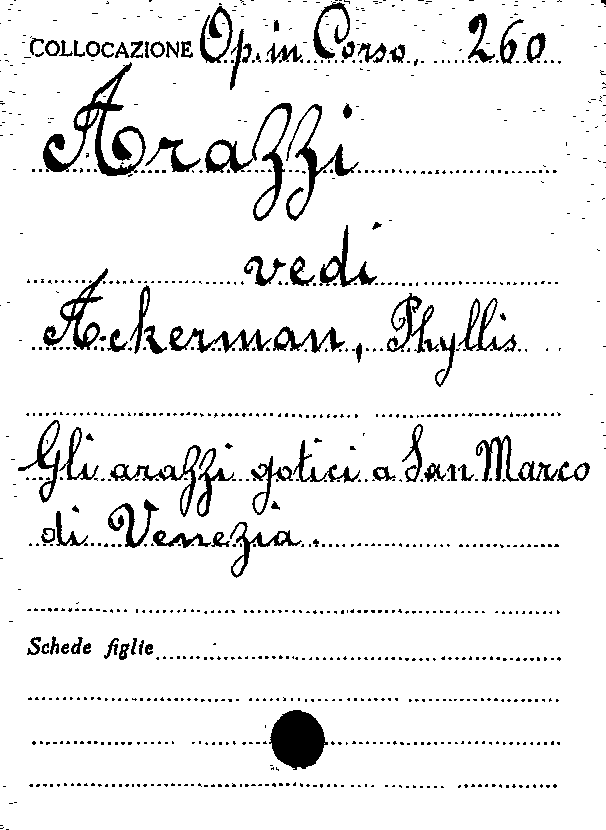 COLLOCAZIONE Op. in Corso. 260
Arazzi
vedi
Ackerman, Phyllis
Gli arazzi gotici a San Marco
di Venezia.
Schede figlie